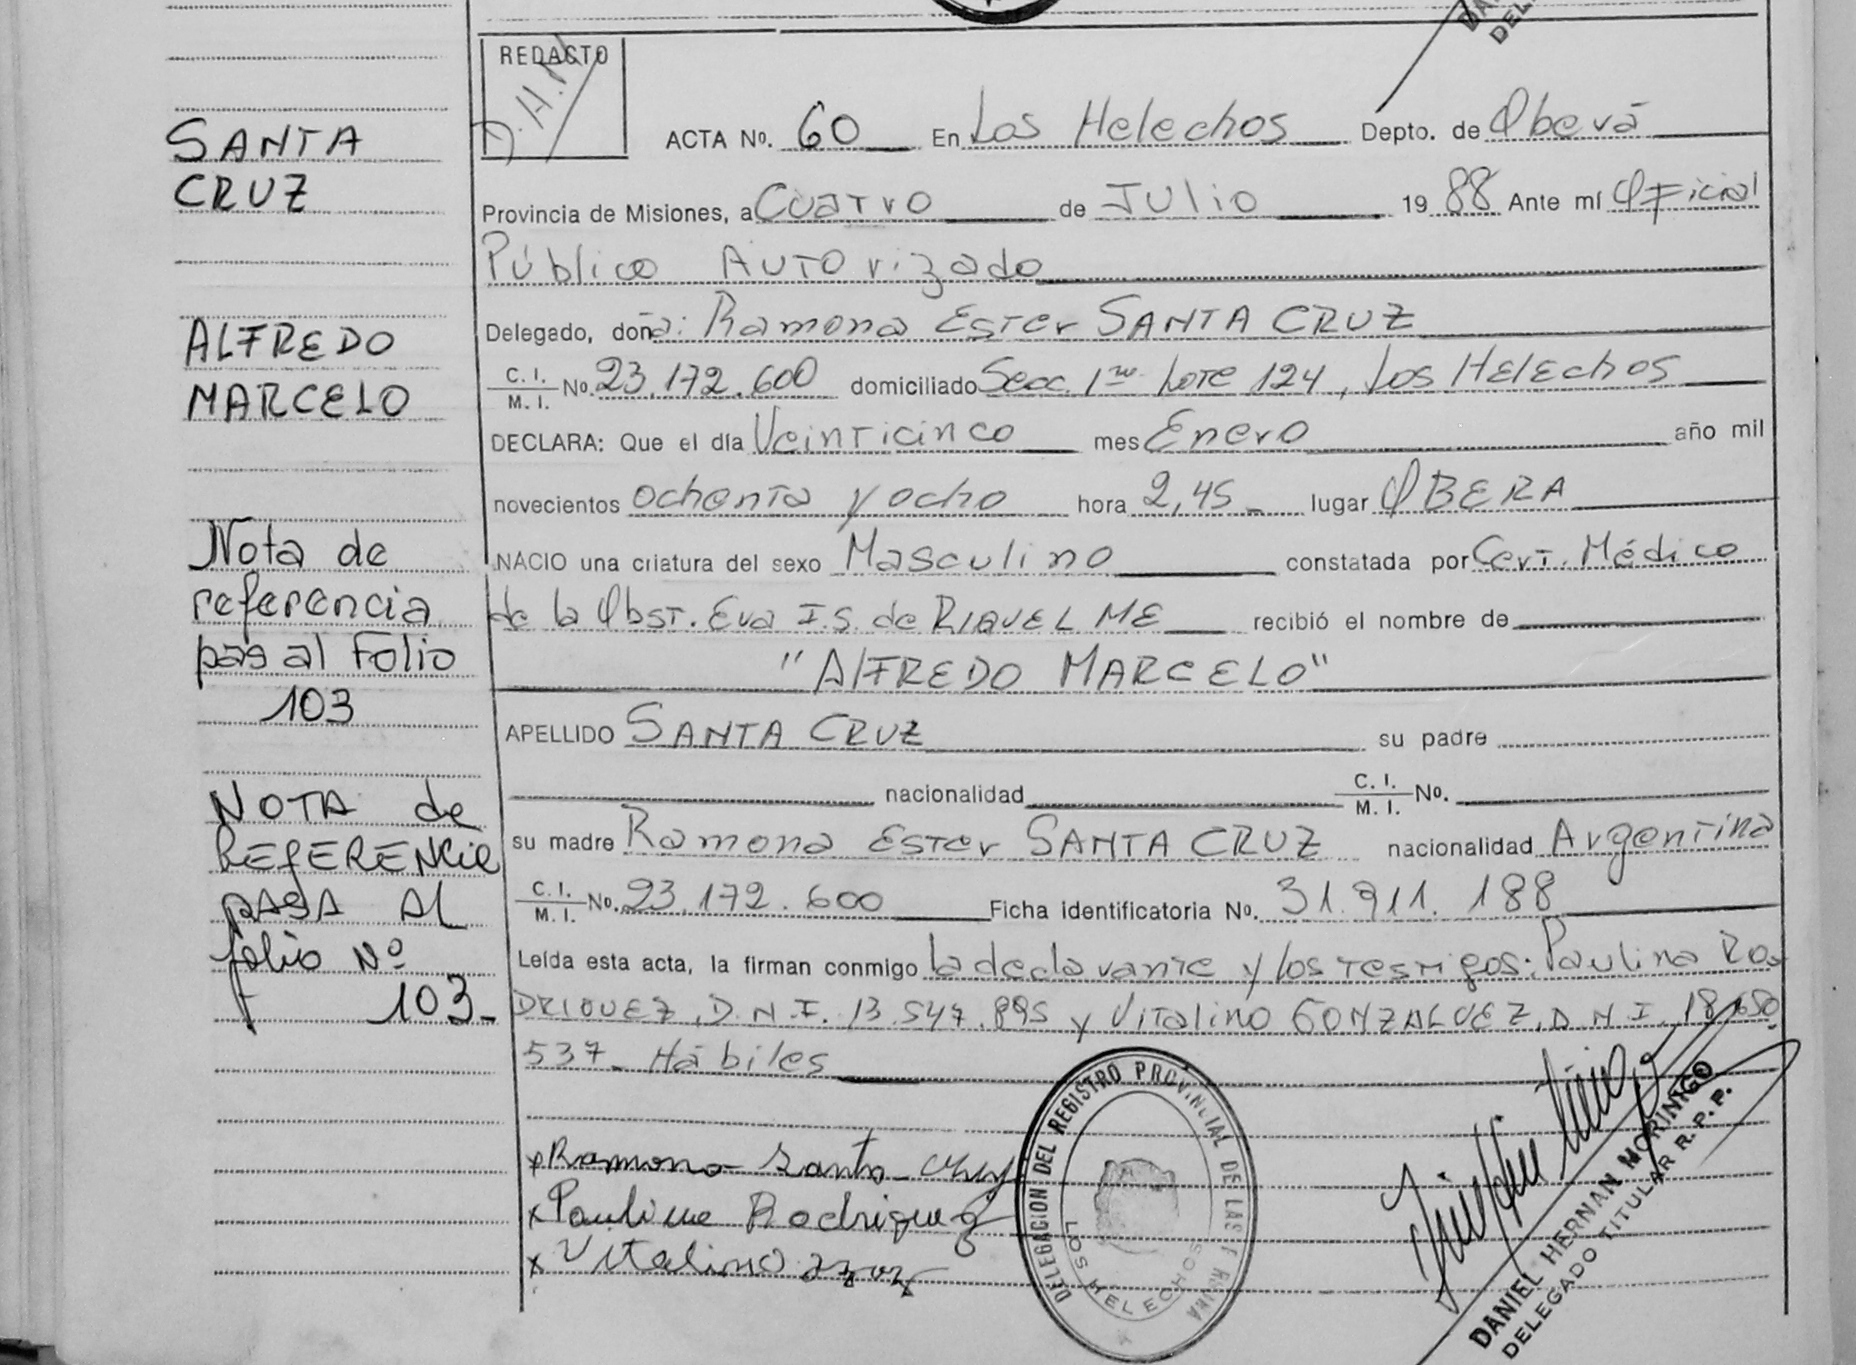 REDACTO
D.H.M
ACTA Nº. 60 En Los Helechos Depto. de Oberá
Provincia de Misiones, a Cuatro de Julio 19 88 Ante mí Oficial
Público Autorizado
Delegado, doña: Ramona Ester SANTA CRUZ
C. I.
M. I. Nº. 23.172.600 domiciliado Secc. 1ra Lote 124, Los Helechos
DECLARA: Que el día Veinticinco mes Enero año mil
novecientos ochenta y ocho hora 2,45 lugar OBERA
NACIO una criatura del sexo Masculino constatada por Cert. Médico
de la Obst. Eva I.S. de RIQUELME recibió el nombre de
"ALFREDO MARCELO"
APELLIDO SANTA CRUZ su padre
nacionalidad C. I.
M. I. Nº.
su madre Ramona Ester SANTA CRUZ nacionalidad Argentina
C. I.
M. I. Nº. 23.172.600 Ficha identificatoria Nº. 31.911.188
Leída esta acta, la firman conmigo la declarante y los testigos: Paulina Ro-
DRIGUEZ, D.N.I. 13.547.895 y Vitalino GONZALVEZ, D.N.I. 18.650.
537- Hábiles
SANTA
CRUZ
ALFREDO
MARCELO
Nota de
referencia
pasa al Folio
103
NOTA de
REFERENCIA
PASA AL
folio Nº
103-
x Ramona Santa Cruz
x Paulina Rodriguez
x Vitalino
DELEGACION DEL REGISTRO PROVINCIAL DE LAS
LOS HELECHOS
DANIEL HERNAN MORINIGO
DELEGADO TITULAR R. P. P.